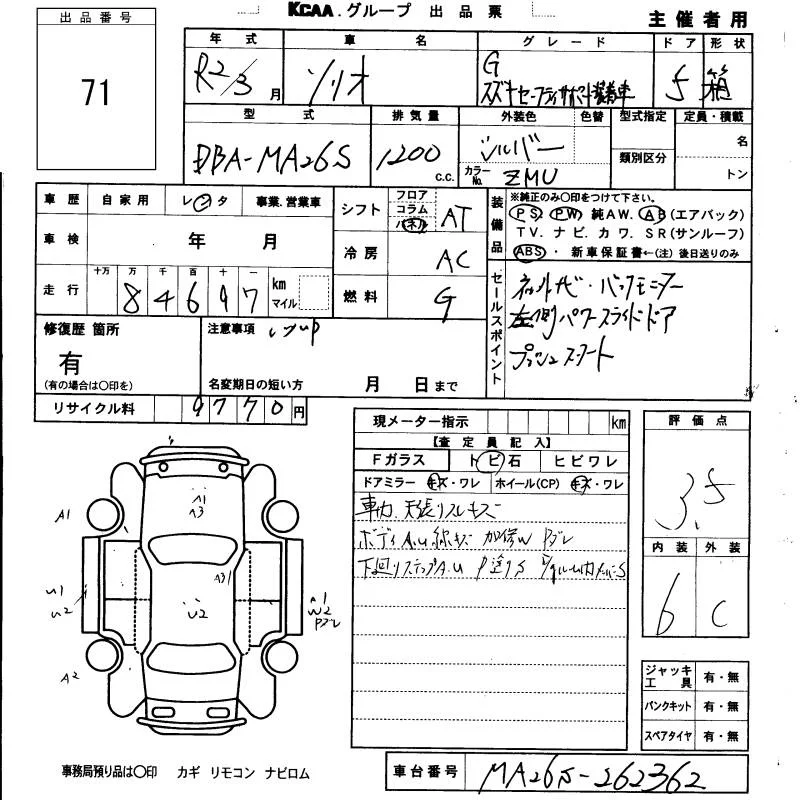 KCAA.グループ 出品票
主催者用
出品番号
71
年式 車名 グレード ドア 形状
R2/3月 ソリオ G 5 箱
スズキセーフティサポート装着車
型式 排気量 外装色 色替 型式指定 定員・積載
DBA-MA26S 1200 C.C. シルバー 名
カラーNo. ZMU 類別区分 トン
車歴 自家用 レンタ 事業.営業車
シフト フロア コラム パネル AT
装備品 ※純正のみ○印をつけて下さい。
PS PW 純AW. AB(エアバック)
TV. ナビ. カワ. SR(サンルーフ)
ABS・新車保証書←(注)後日送りのみ
車検 年 月
冷房 AC
走行 十万 万 千 百 十 一
84697 km マイル
燃料 G
セールスポイント
バックモニター
左側パワースライドドア
プッシュスタート
修復歴 箇所
有
(有の場合は○印を)
注意事項 レンup
名変期日の短い方 月 日まで
リサイクル料 9770円
現メーター指示 km
【査定員記入】
Fガラス トビ石 ヒビワレ
ドアミラー キズ・ワレ ホイール(CP) キズ・ワレ
車内.天張リスレキズ
ボディA.U線キズ 加修W Pブレ
下回リステップA.U P塗りS
評価点
3.5
内装 外装
6 C
A1
A1
A3
A31
U1
U2
U2
A1
W2
Pブレ
A2
ジャッキ工具 有・無
パンクキット 有・無
スペアタイヤ 有・無
事務局預り品は○印 カギ リモコン ナビロム
車台番号 MA26S-262362